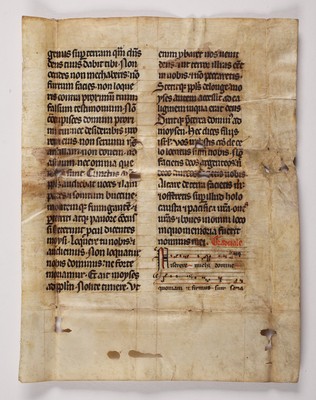 geuus sup terram qm dns
deus tuus dabit tibi. Non
occides non mechaberis. no
furtum facies. non loque
ris contra proximu tuum
falsum testimonium. Non
concupisces domum proxi
mi tui. nec desiderabis uxo
rem eius. non seruum no
ancillam. non bouem. no
asinum nec omnia que
illius sunt. Cunctus aut
ppls audiebat uoces et lam
pades et sonitum buccine
montemq; fumigante. et
perterriti atq; pauore concus
si steterunt procul dicentes
moysi. Loquere tu nobis et
audiemus. Non loquatur
nobis dominus ne forte
moriamur. Et ait moyses
ad pplm. Nolite timere. Ut
enim pbaret uos uenit
deus et ut terror illius esset
in uobis et no peccaretis.
Stetitq; ppls de longe. mo
yses autem accessit ad ca
liginem in qua erat deus
Dixitq; preterea domin ad
moysen. Hec dices filijs
isrl. Vos uidistis qd de ce
lo locutus sum uobis. No
facietis deos argenteos nec
deos aureos facietis uobis
Altare de terra facietis m et
offeretis sup illud holo
causta et pacifica ura. oues
uras et boues in omni loco
in quo memoria fuerit
nominis mei. Graduale
Miserere michi domine
quoniam infirmus sum Sana